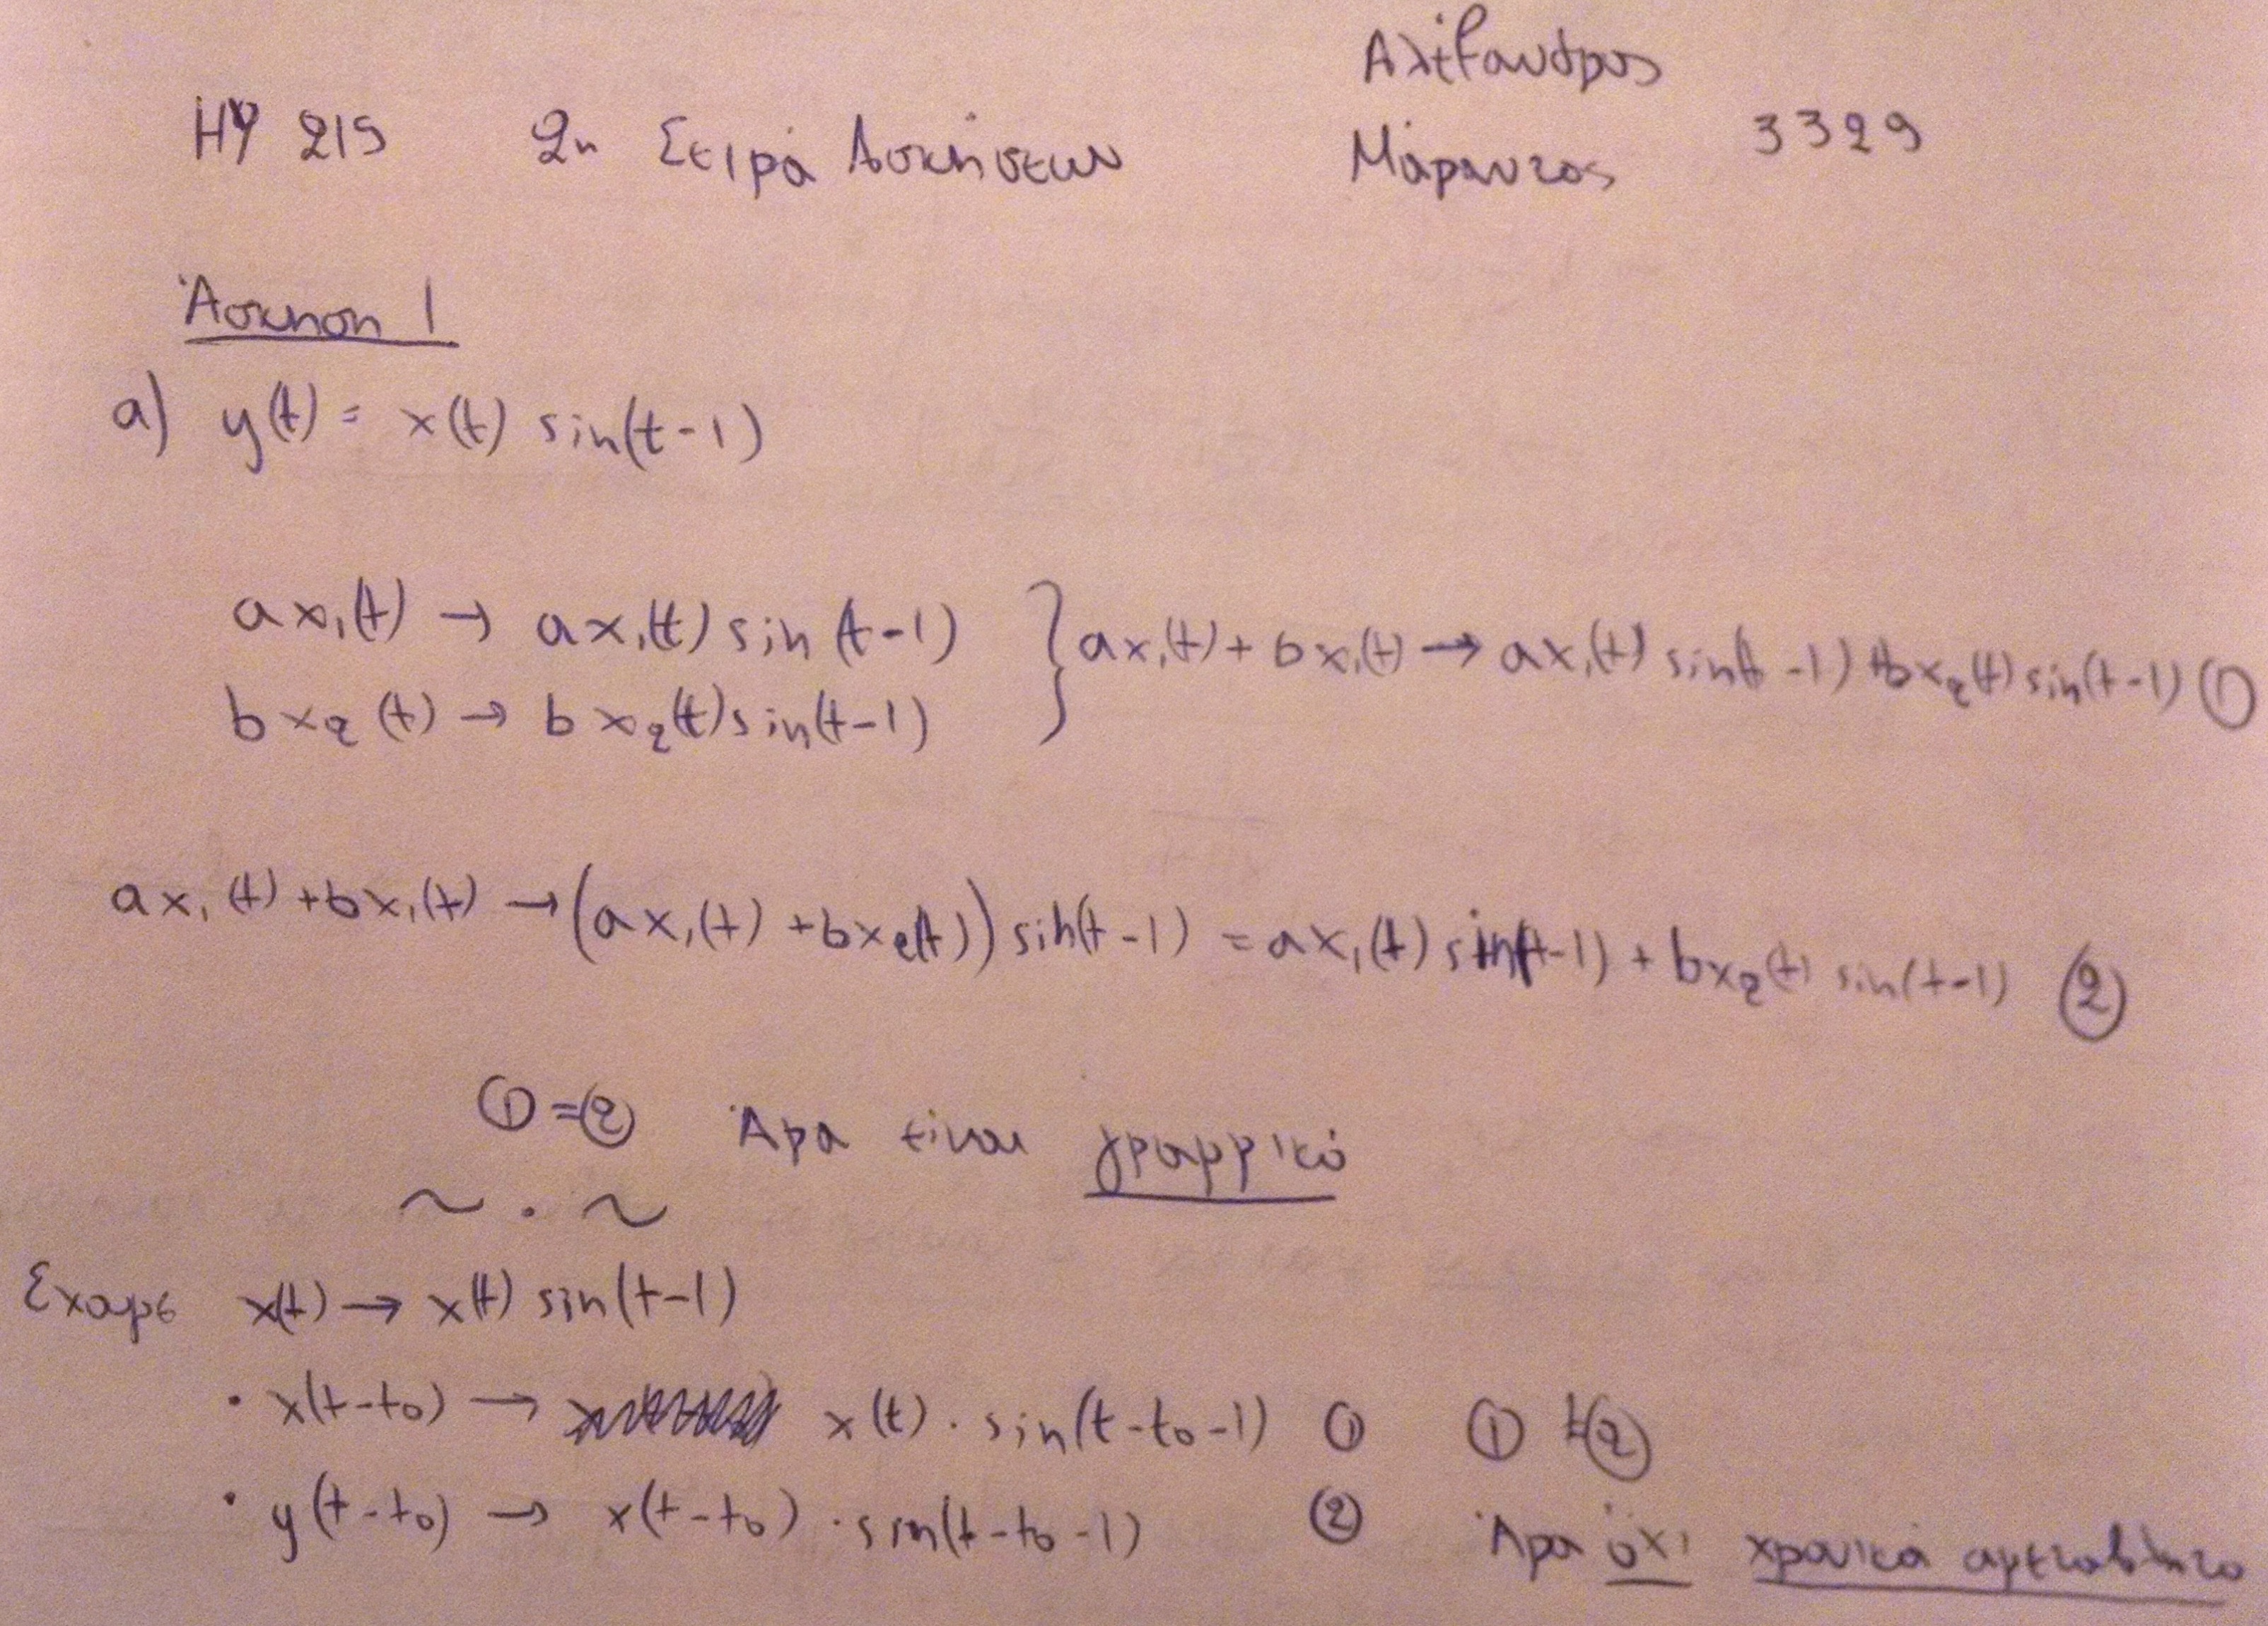 Αλέξανδρος
ΗΥ 215 2η Σειρά Ασκήσεων Μάραντος 3329
Άσκηση 1
a) y(t) = x(t) sin(t-1)
ax₁(t) → ax₁(t) sin(t-1) } ax₁(t) + bx₁(t) → ax₁(t) sin(t-1) + bx₂(t) sin(t-1) ①
bx₂(t) → bx₂(t) sin(t-1)
ax₁(t) + bx₁(t) → (ax₁(t) + bx₂(t)) sin(t-1) = ax₁(t) sin(t-1) + bx₂(t) sin(t-1) ②
① = ② Άρα είναι γραμμικό
~ . ~
Εχομε x(t) → x(t) sin(t-1)
• x(t-t₀) → x(t) · sin(t-t₀-1) ① ① ≠ ②
• y(t-t₀) → x(t-t₀) · sin(t-t₀-1) ② Άρα όχι χρονικά αμετάβλητο